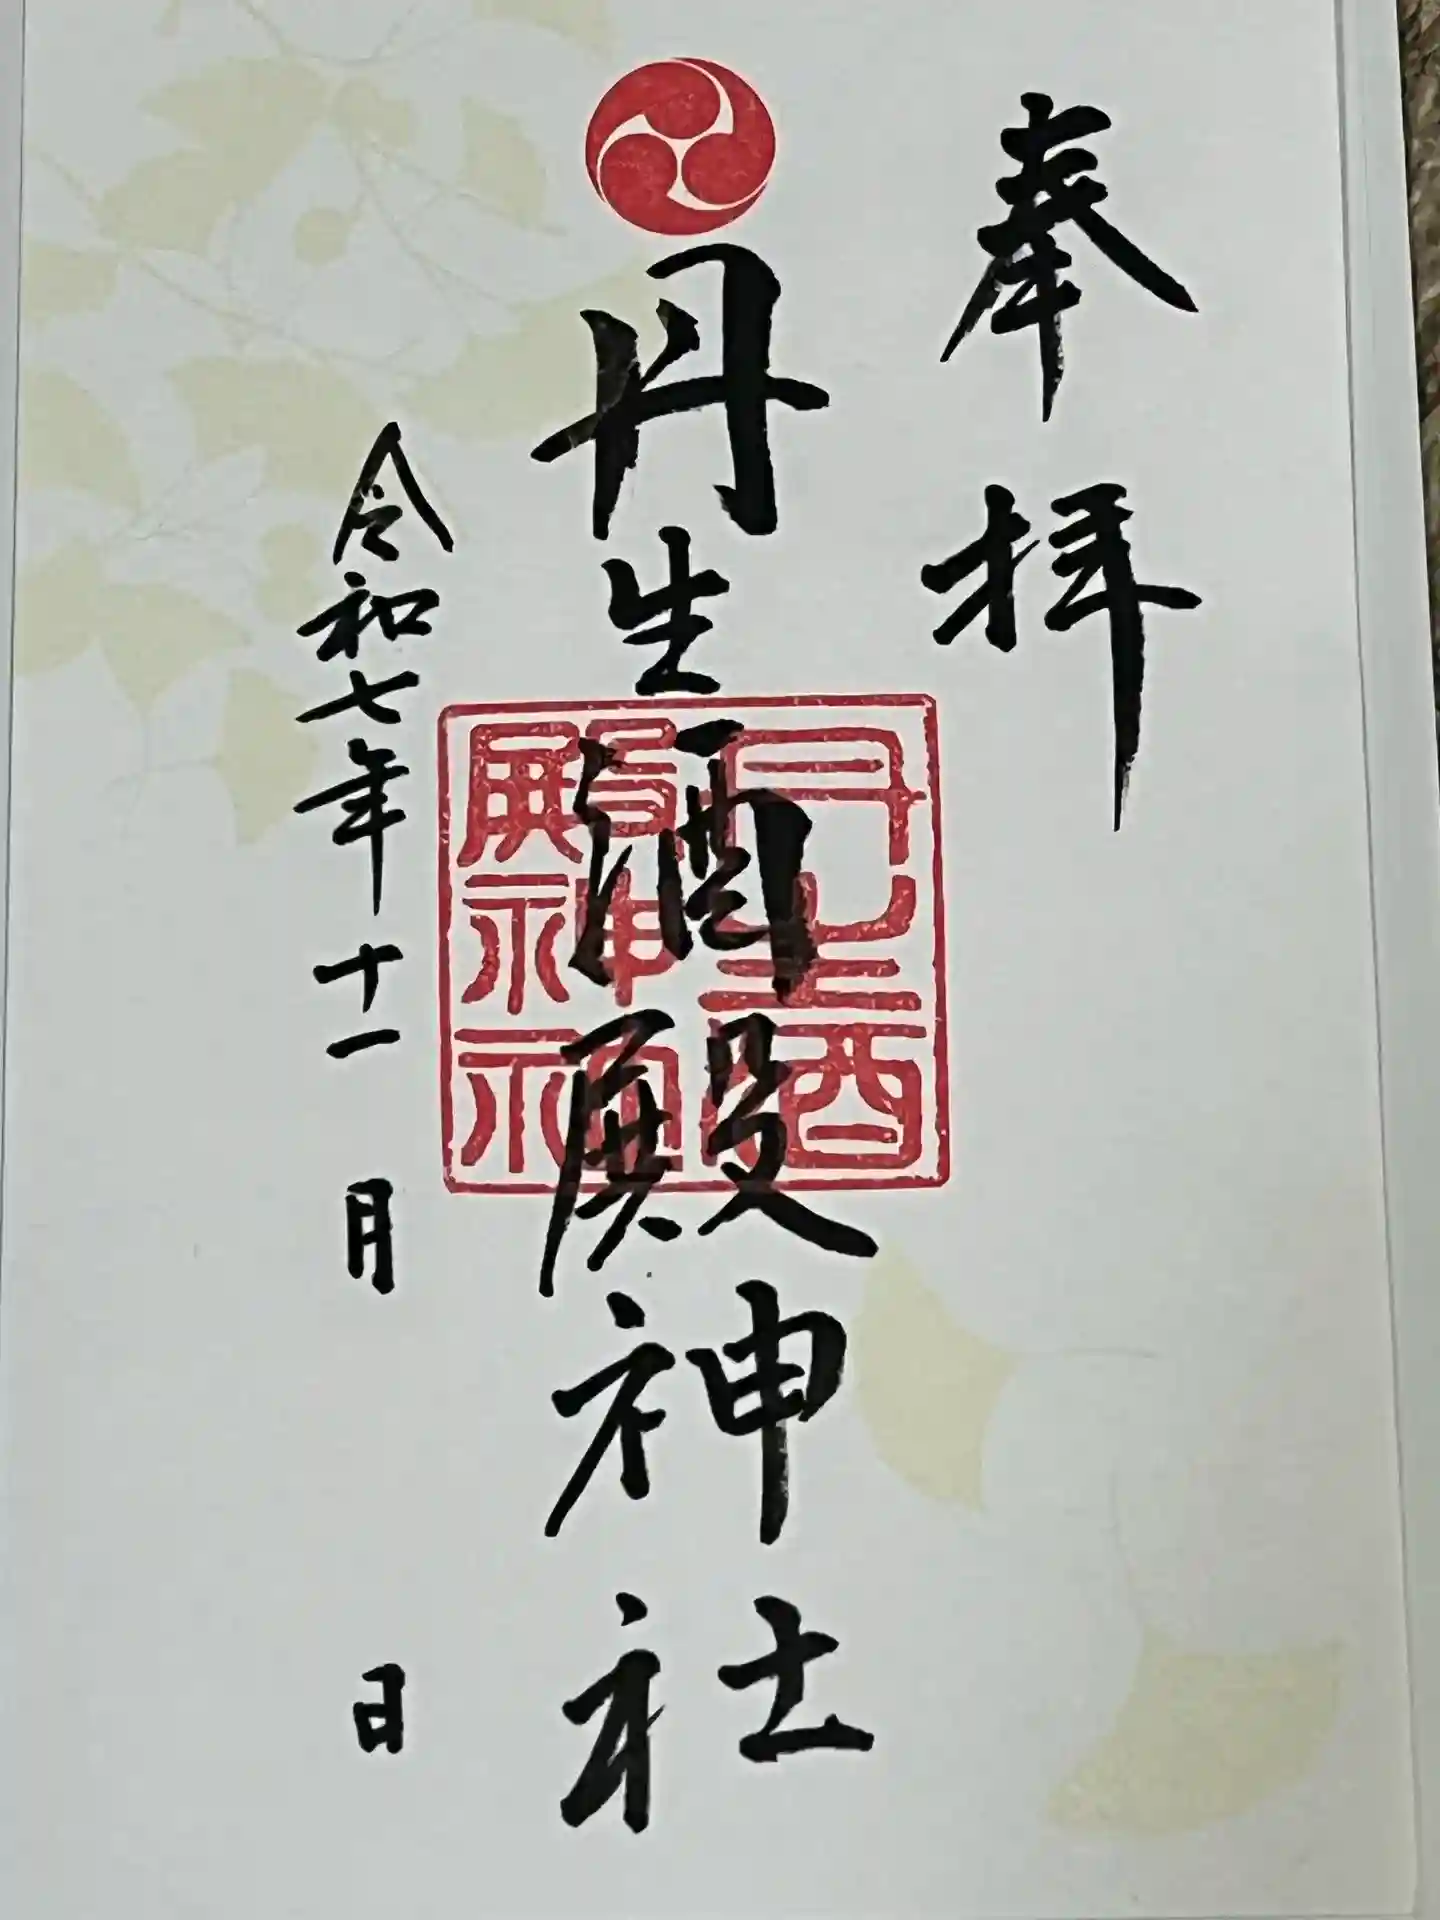 奉拝
丹生酒殿神社
丹生酒
殿神社
令和七年十一月 日